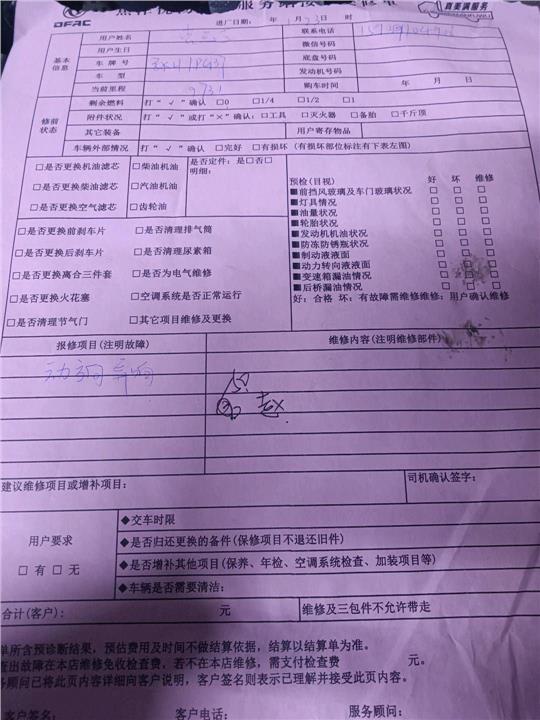 服务站接
真美满服务
DFAC
进厂日期: 年 1月23日 时
用户姓名 联系电话
用户生日 微信号码
基本信息 车牌号 底盘号码
车型 发动机号码
当前里程 9731 购车时间 年 月 日
修前状态 剩余燃料 打“√”确认 □0 □1/4 □1/2 □1
附件状况 打“√”或打“×”确认:□工具 □灭火器 □备胎 □千斤顶
其它装备 用户寄存物品
车辆外部情况 打“√”确认 □完好 □有损坏(有损坏部位标注有下表左图)
□是否更换机油滤芯 □柴油机油 是否定件:是□否□
明细:
□是否更换柴油滤芯 □汽油机油
□是否更换空气滤芯 □齿轮油
预检(目视) 好 坏 维修
■前挡风玻璃及车门玻璃状况 □ □ □
■灯具情况 □ □ □
■油量状况 □ □ □
■轮胎状况 □ □ □
■发动机机油状况 □ □ □
■防冻防锈瓶状况 □ □ □
■制动液液面 □ □ □
■动力转向液液面 □ □ □
■变速箱漏油情况 □ □ □
■后桥漏油情况 □ □ □
好:合格 坏:有故障需维修维修:用户确认维修
□是否更换前刹车片 □是否清理排气筒
□是否更换后刹车片 □是否清理尿素箱
□是否更换离合三件套 □是否为电气维修
□是否更换火花塞 □空调系统是否正常运行
□是否清理节气门 □其它项目维修及更换
报修项目(注明故障) 维修内容(注明维修部件)
异响
建议维修项目或增补项目: 司机确认签字:
用户要求
□有 □无
◆交车时限
◆是否归还更换的备件(保修项目不退还旧件)
◆是否增补其他项目(保养、年检、空调系统检查、加装项目等)
◆车辆是否需要清洁:
合计(客户): 元 维修及三包件不允许带走
单所含预诊断结果,预估费用及时间不做结算依据,结算以结算单为准。
查出故障在本店维修免收检查费,若不在本店维修,需支付检查费 元。
务顾问已将此页内容详细向客户说明,客户签名则表示已理解并接受此页内容。
客户签名: 客户电话: 服务顾问: